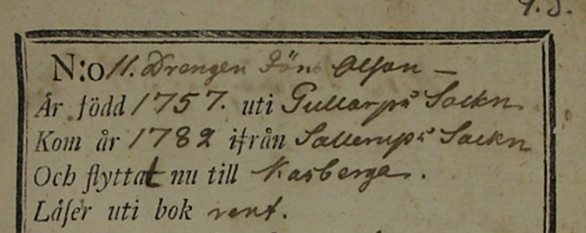 9.5.
N:o 11. Drengen Jöns Olsson —
Är född 1757. uti Gullarps Sockn
Kom år 1782 ifrån Sallerups Sockn
Och flyttat nu till Kasberga.
Läser uti bok rent.